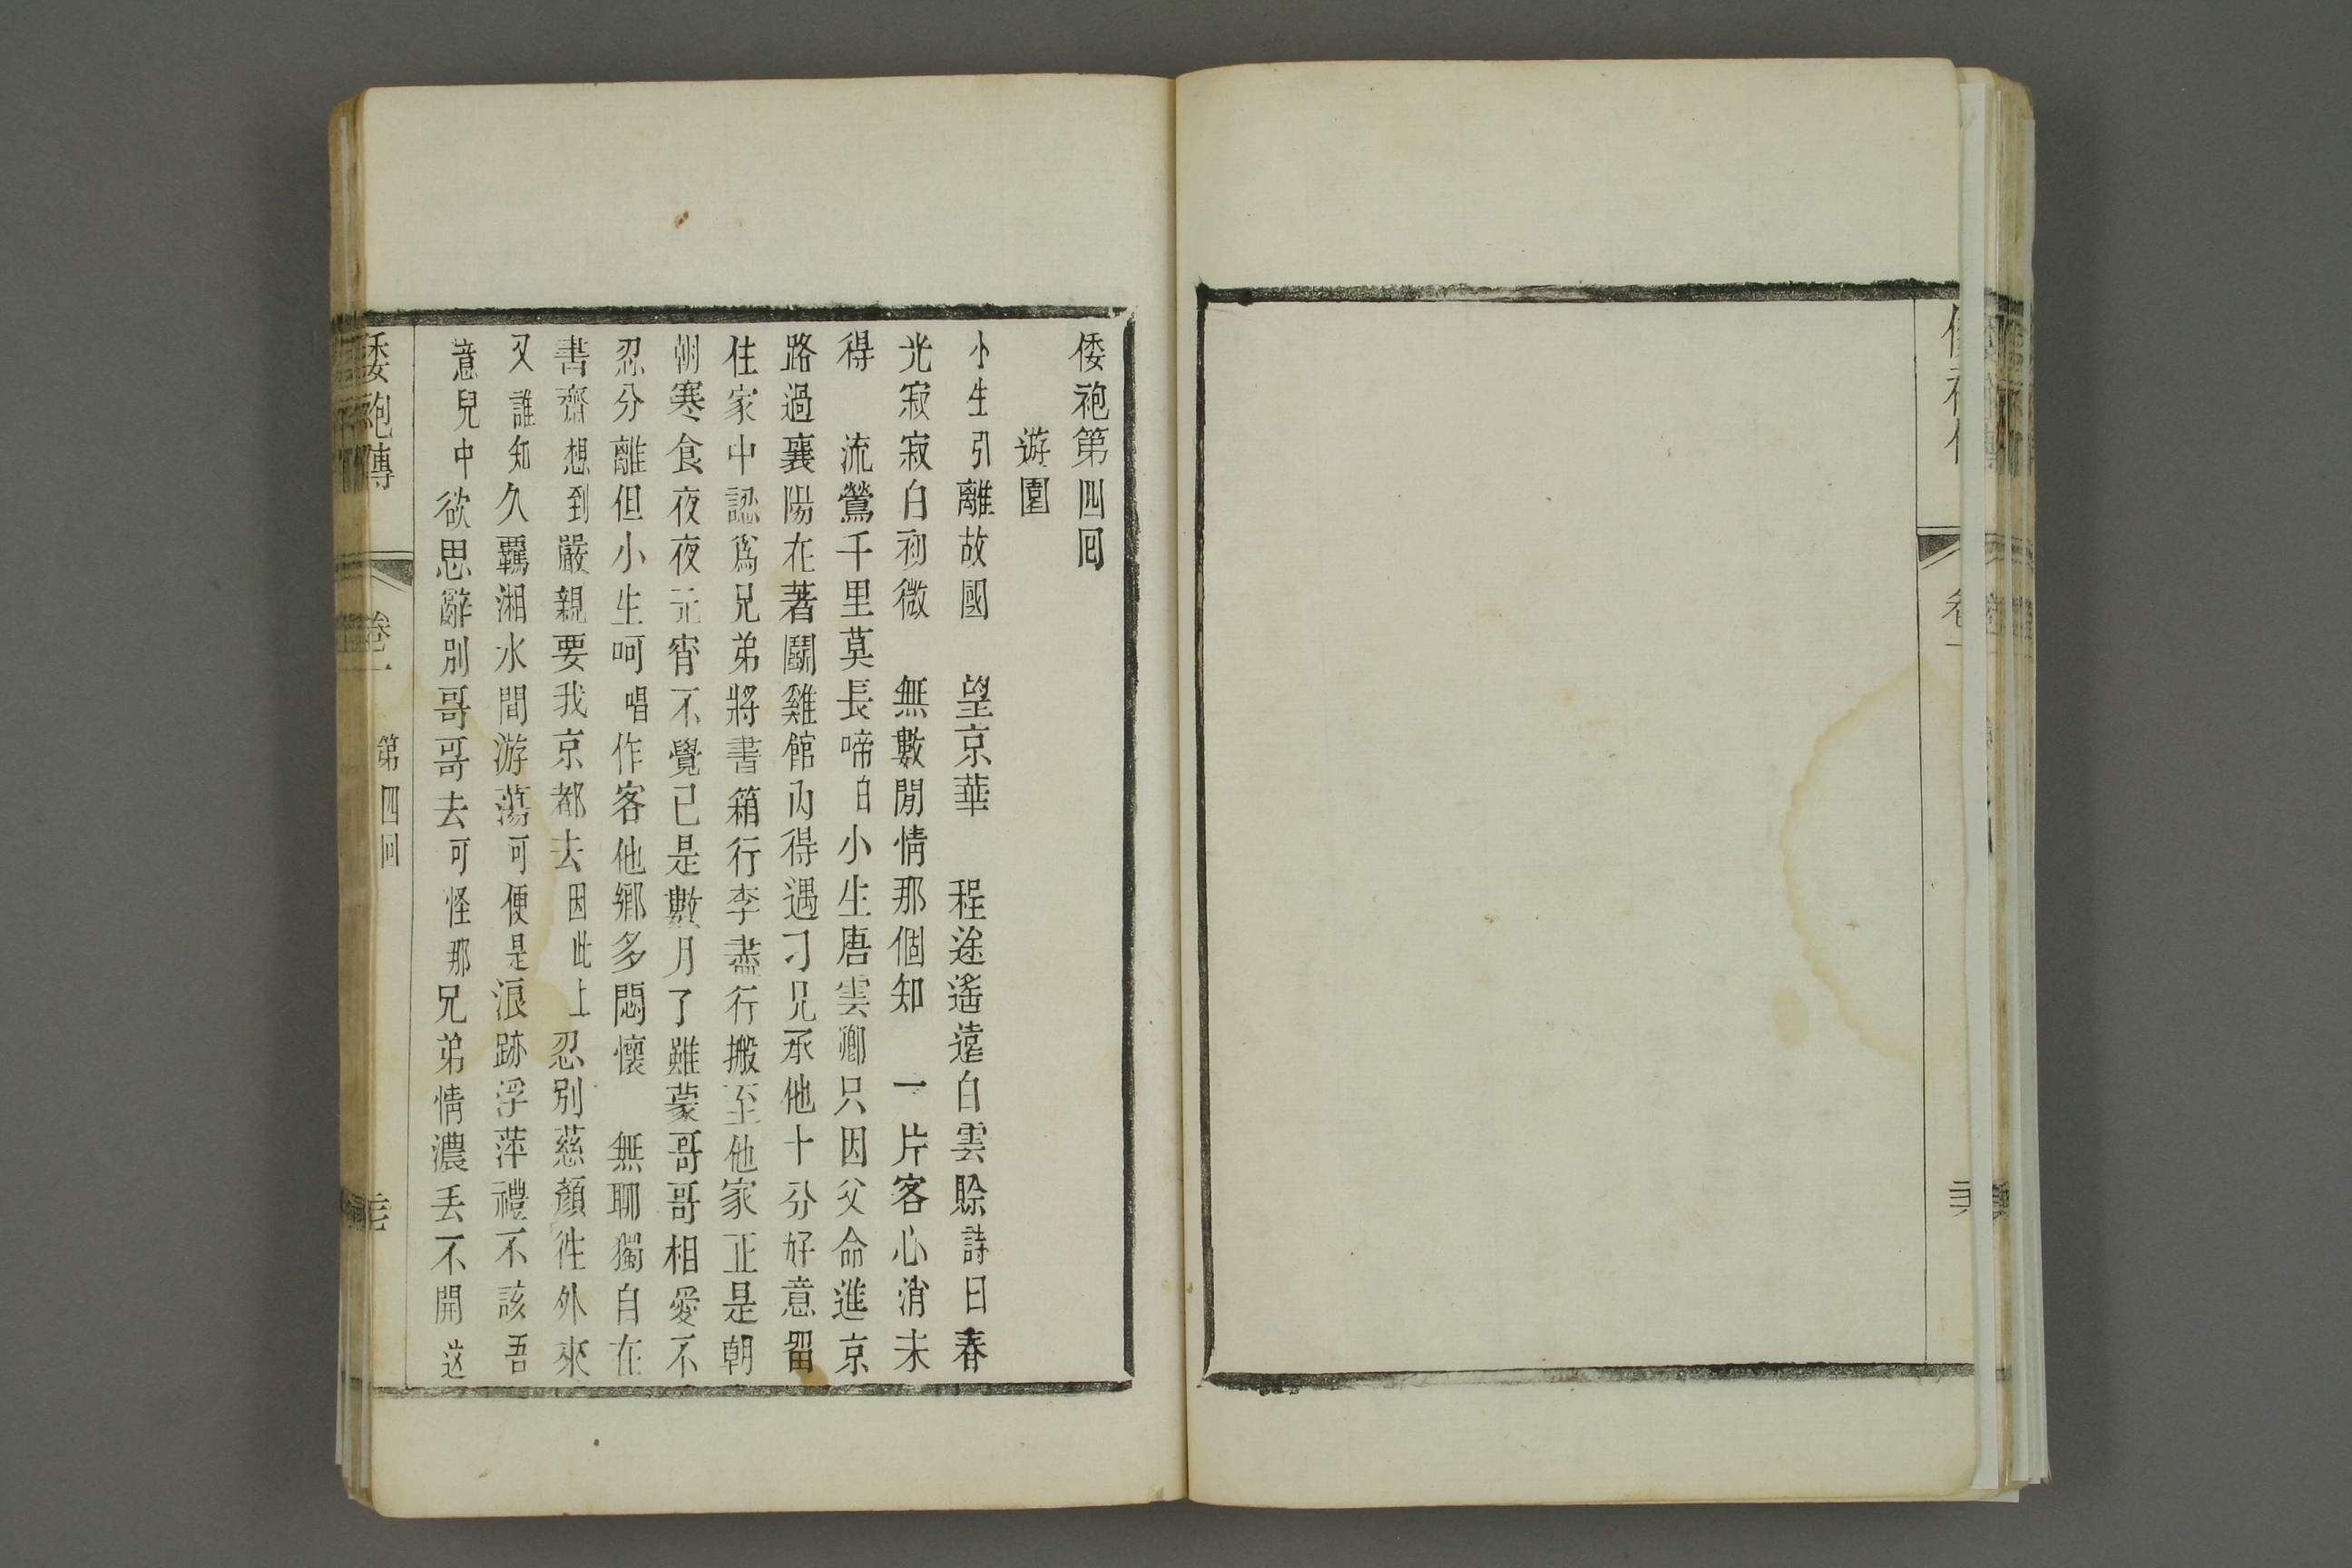 倭袍第四囘
遊園
小生引離故國　望京華　程途遙遠白雲賒詩曰春
光寂寂白初微　無數閒情那個知　一片客心消未
得　流鶯千里莫長啼白小生唐雲卿只因父命進京
路過襄陽在著鬭雞館內得遇刁兄承他十分好意留
住家中認爲兄弟將書箱行李盡行搬至他家正是朝
朝寒食夜夜元宵不覺已是數月了雖蒙哥哥相愛不
忍分離但小生呵唱作客他鄉多悶懷　無聊獨自在
書齋想到嚴親要我京都去因此上忍別慈顏徃外來
又誰知久羈湘水間游蕩可便是浪跡浮萍禮不該吾
意兒中欲思辭別哥哥去可怪那兄弟情濃丟不開这
倭袍傳　卷一　第四回
卷一